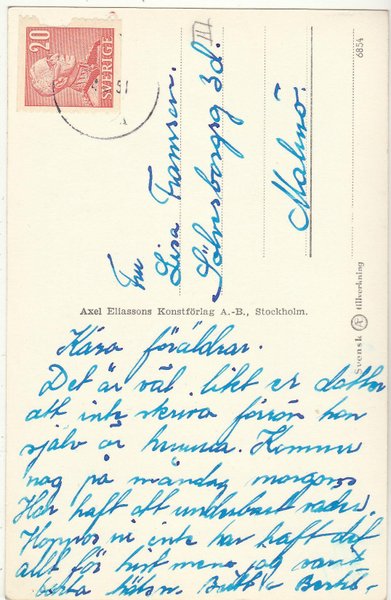 20
SVERIGE
51
6854
Fru
Lisa Fransson.
Sölvesborgsg 3 d.
Malmö.
Axel Eliassons Konstförlag A.-B., Stockholm.
Svensk Æ tillverkning
Kära föräldrar.
Det är väl likt er dotter
att inte skriva förrän hon
själv är hemma. Kommer
nog på måndag morgon
Har haft ett underbart
Hoppas ni inte har haft det
allt för hett mens jag varit
borta